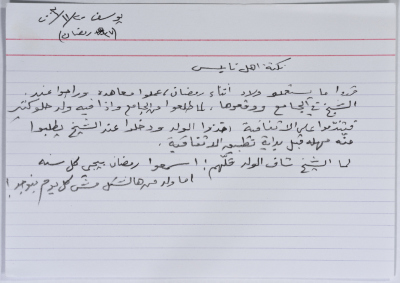 يوسف
رمضان)
نكتة اهل نابلس
قرروا ما يستعملو ولاد أثناء رمضان، عملوا معاهدة وراحوا عند
الشيخ في الجامع ووقعوها، لما طلعوا من الجامع واذا فيه ولد حلو كتير
فتندموا على الاتفاقية اخذوا الولد ودخلوا عند الشيخ يطلبوا
منه مهلة قبل بداية تطبيق الاتفاقية.
لما الشيخ شاف الولد قلهم! اسمعوا رمضان بيجي كل سنه
اما ولد من هالشكل مش كل يوم بنوجد!